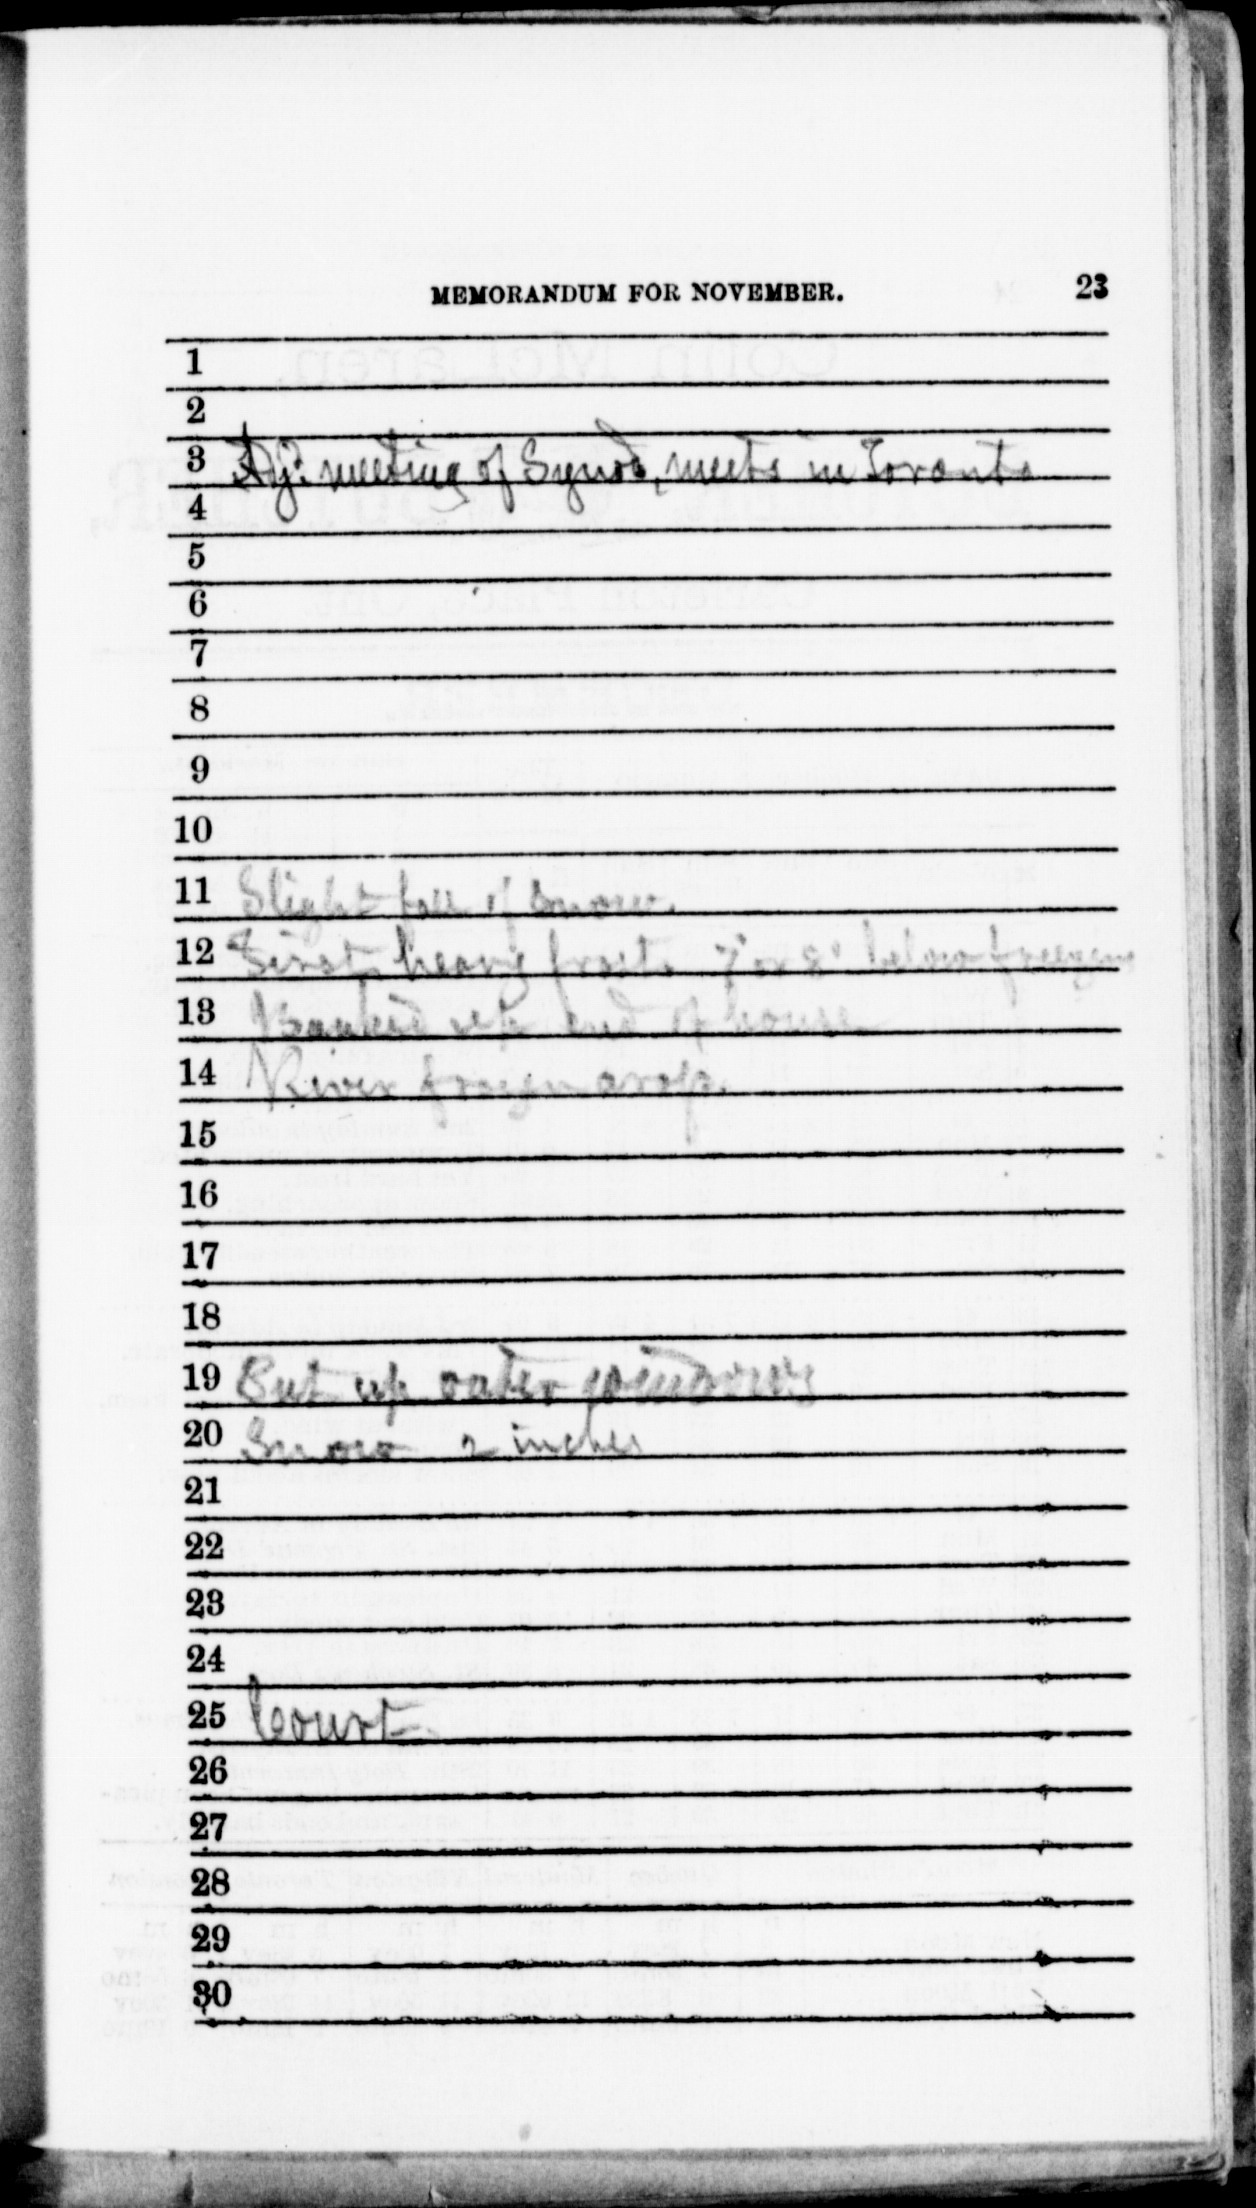 MEMORANDUM FOR NOVEMBER. 23
1
2
3 Adj. meeting of Synod, meets in Toronto
4
5
6
7
8
9
10
11 Slight fall of snow.
12 First heavy frost 7° or 8° below freezing
13 Banked up end of house
14 River frozen
15
16
17
18
19 Put up outer windows
20 Snow 2 inches
21
22
23
24
25 Court
26
27
28
29
30